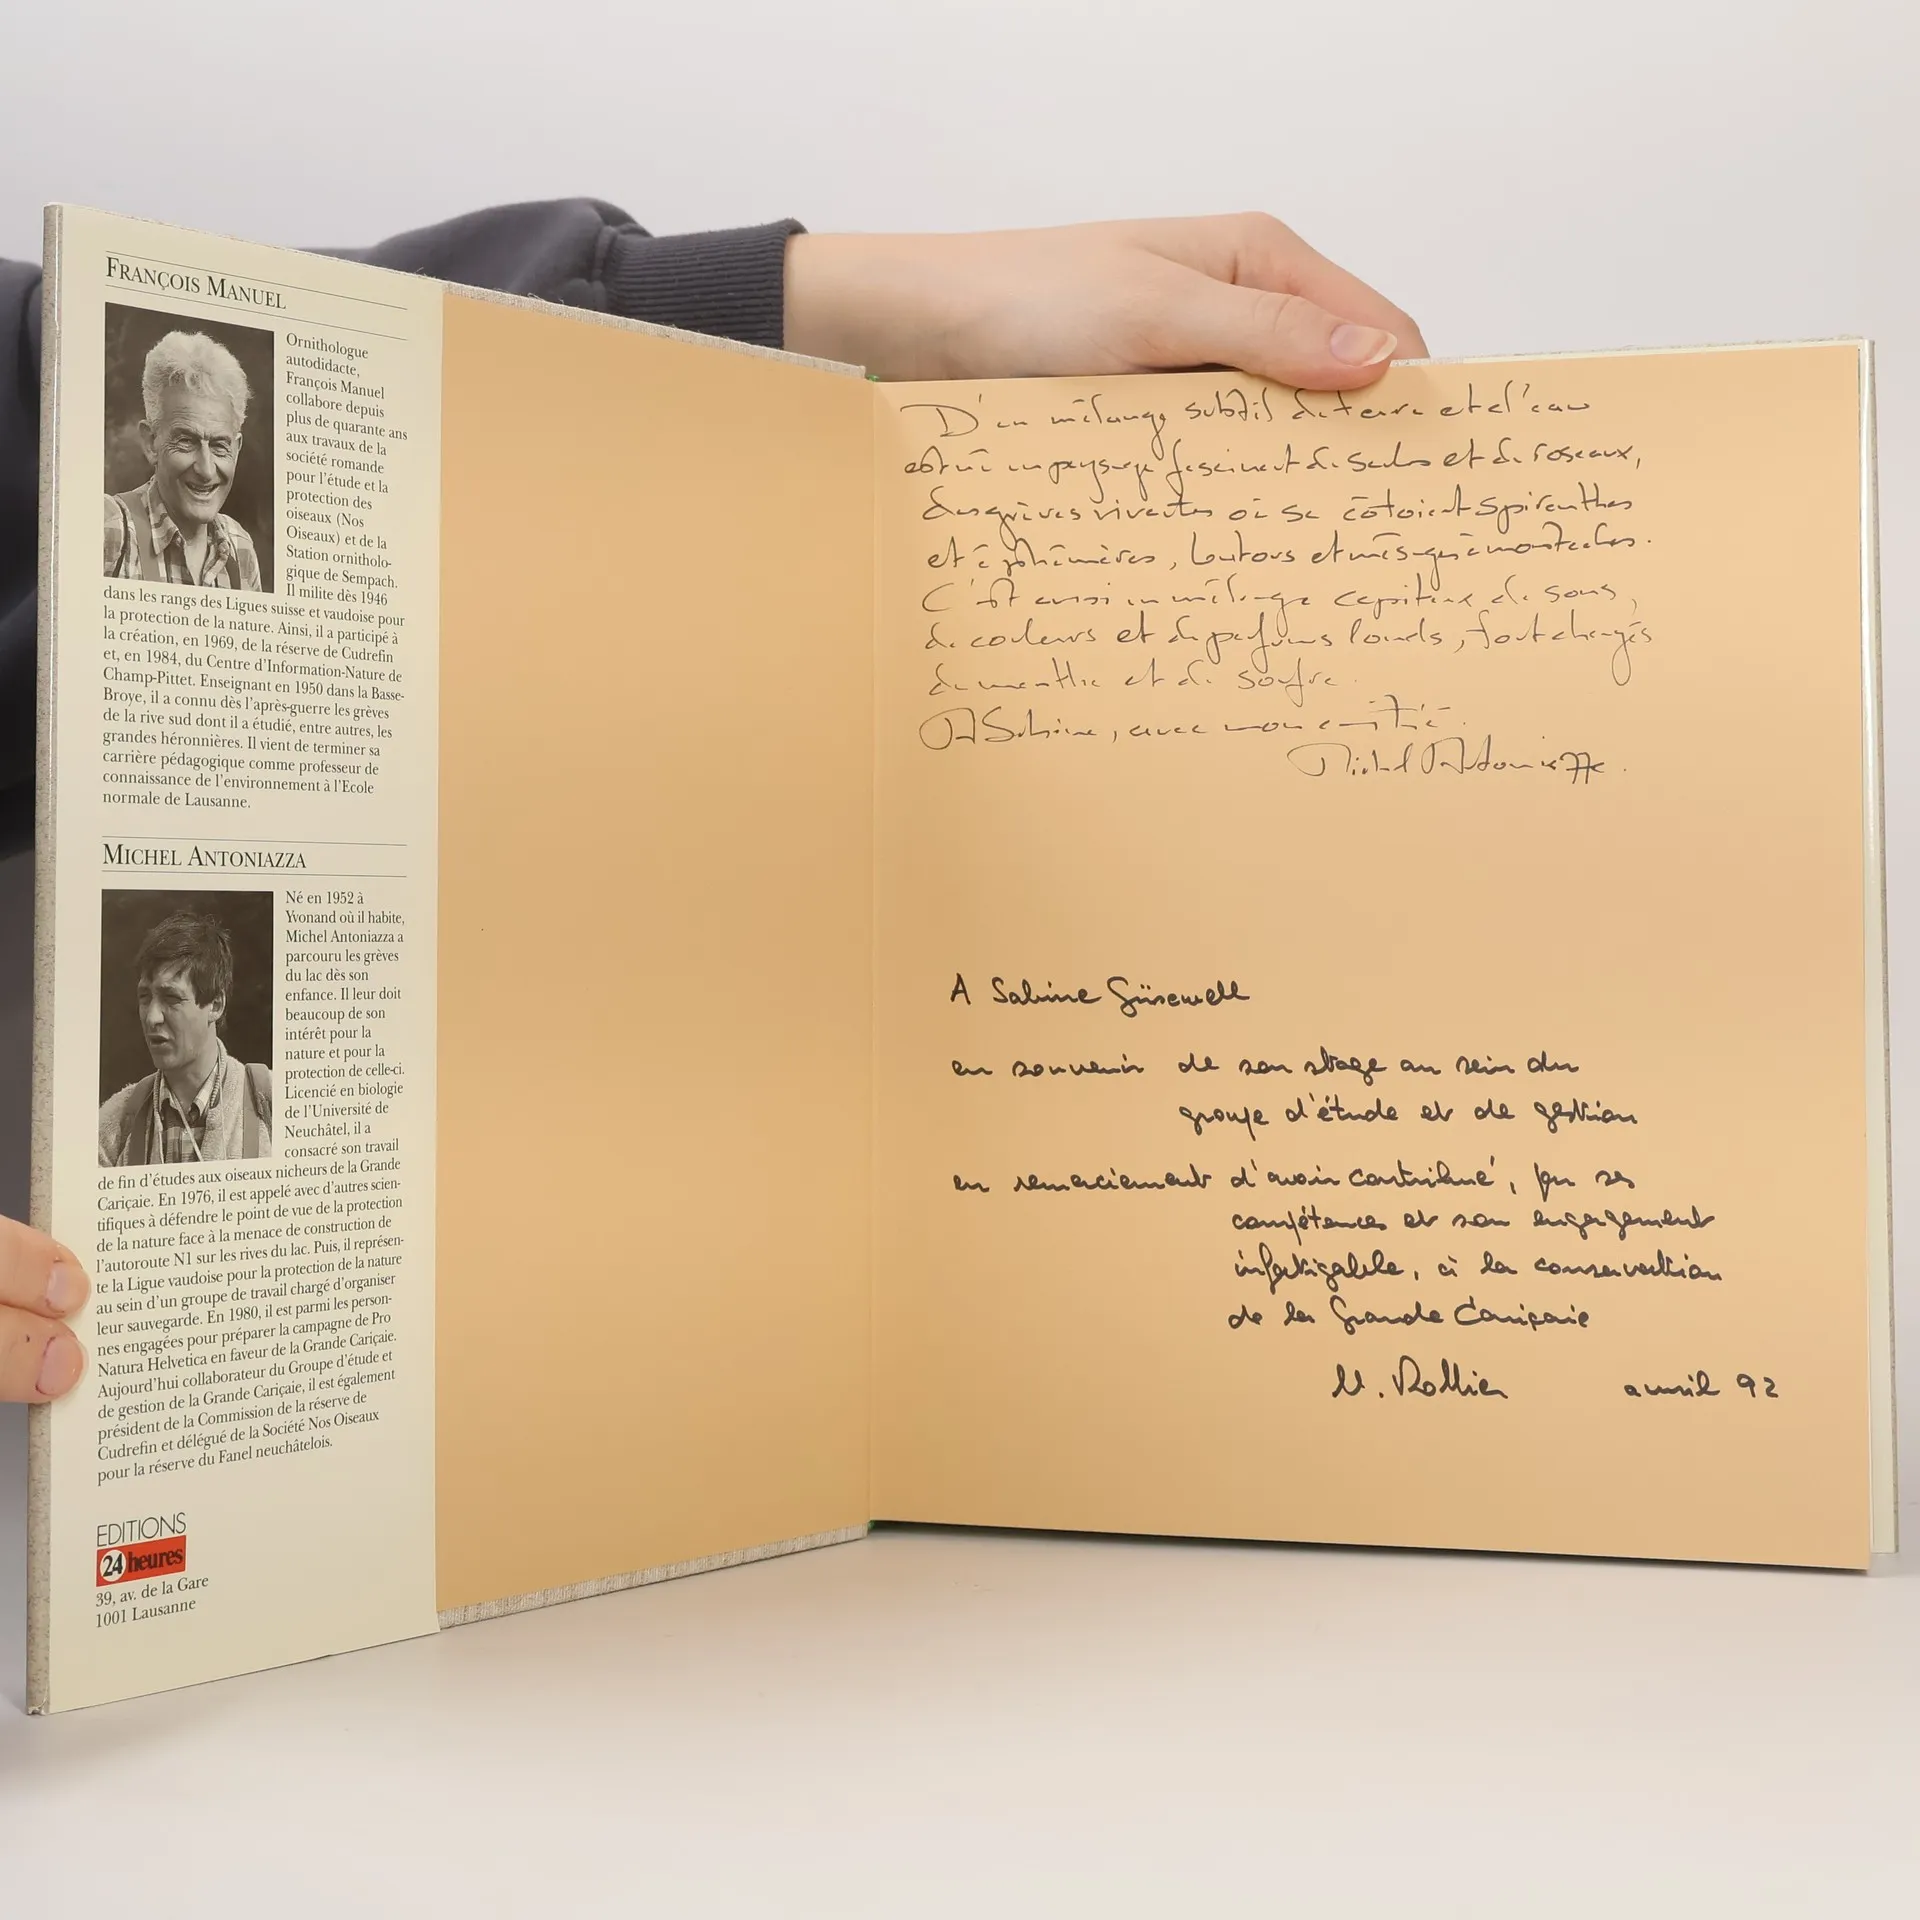 FRANÇOIS MANUEL
Ornithologue
autodidacte,
François Manuel
collabore depuis
plus de quarante ans
aux travaux de la
société romande
pour l'étude et la
protection des
oiseaux (Nos
Oiseaux) et de la
Station ornitholo-
gique de Sempach.
Il milite dès 1946
dans les rangs des Ligues suisse et vaudoise pour
la protection de la nature. Ainsi, il a participé à
la création, en 1969, de la réserve de Cudrefin
et, en 1984, du Centre d'Information-Nature de
Champ-Pittet. Enseignant en 1950 dans la Basse-
Broye, il a connu dès l'après-guerre les grèves
de la rive sud dont il a étudié, entre autres, les
grandes héronnières. Il vient de terminer sa
carrière pédagogique comme professeur de
connaissance de l'environnement à l'Ecole
normale de Lausanne.
MICHEL ANTONIAZZA
Né en 1952 à
Yvonand où il habite,
Michel Antoniazza a
parcouru les grèves
du lac dès son
enfance. Il leur doit
beaucoup de son
intérêt pour la
nature et pour la
protection de celle-ci.
Licencié en biologie
de l'Université de
Neuchâtel, il a
consacré son travail
de fin d'études aux oiseaux nicheurs de la Grande
Cariçaie. En 1976, il est appelé avec d'autres scien-
tifiques à défendre le point de vue de la protection
de la nature face à la menace de construction de
l'autoroute N1 sur les rives du lac. Puis, il représen-
te la Ligue vaudoise pour la protection de la nature
au sein d'un groupe de travail chargé d'organiser
leur sauvegarde. En 1980, il est parmi les person-
nes engagées pour préparer la campagne de Pro
Natura Helvetica en faveur de la Grande Cariçaie.
Aujourd'hui collaborateur du Groupe d'étude et
de gestion de la Grande Cariçaie, il est également
président de la Commission de la réserve de
Cudrefin et délégué de la Société Nos Oiseaux
pour la réserve du Fanel neuchâtelois.
EDITIONS
24 heures
39, av. de la Gare
1001 Lausanne
D'un mélange subtil de terre et d'eau
est né un paysage fascinant de saules et de roseaux,
des grèves vivantes où se côtoient spiranthes
et éphémères, butors et mésanges à moustaches.
C'est aussi un mélange capiteux de sons,
de couleurs et de parfums lourds, tout chargés
de menthe et de soufre.
A Sabine, avec mon amitié.
Michel Antoniazza.
A Sabine Güsewell
en souvenir de son stage au sein du
groupe d'étude et de gestion
en remerciement d'avoir contribué, par ses
compétences et son engagement
infatigable, à la conservation
de la Grande Cariçaie
M. Rollier avril 92